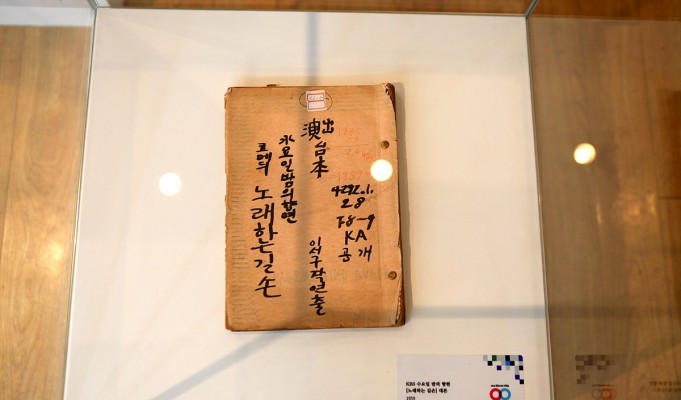 演出
台本
4292.1.
28
KA
공개
이서구 작 연출
水요일밤의향연
코메디
노래하는 길손
KBS 수요일 밤의 향연
[노래하는 길손] 대본
1959